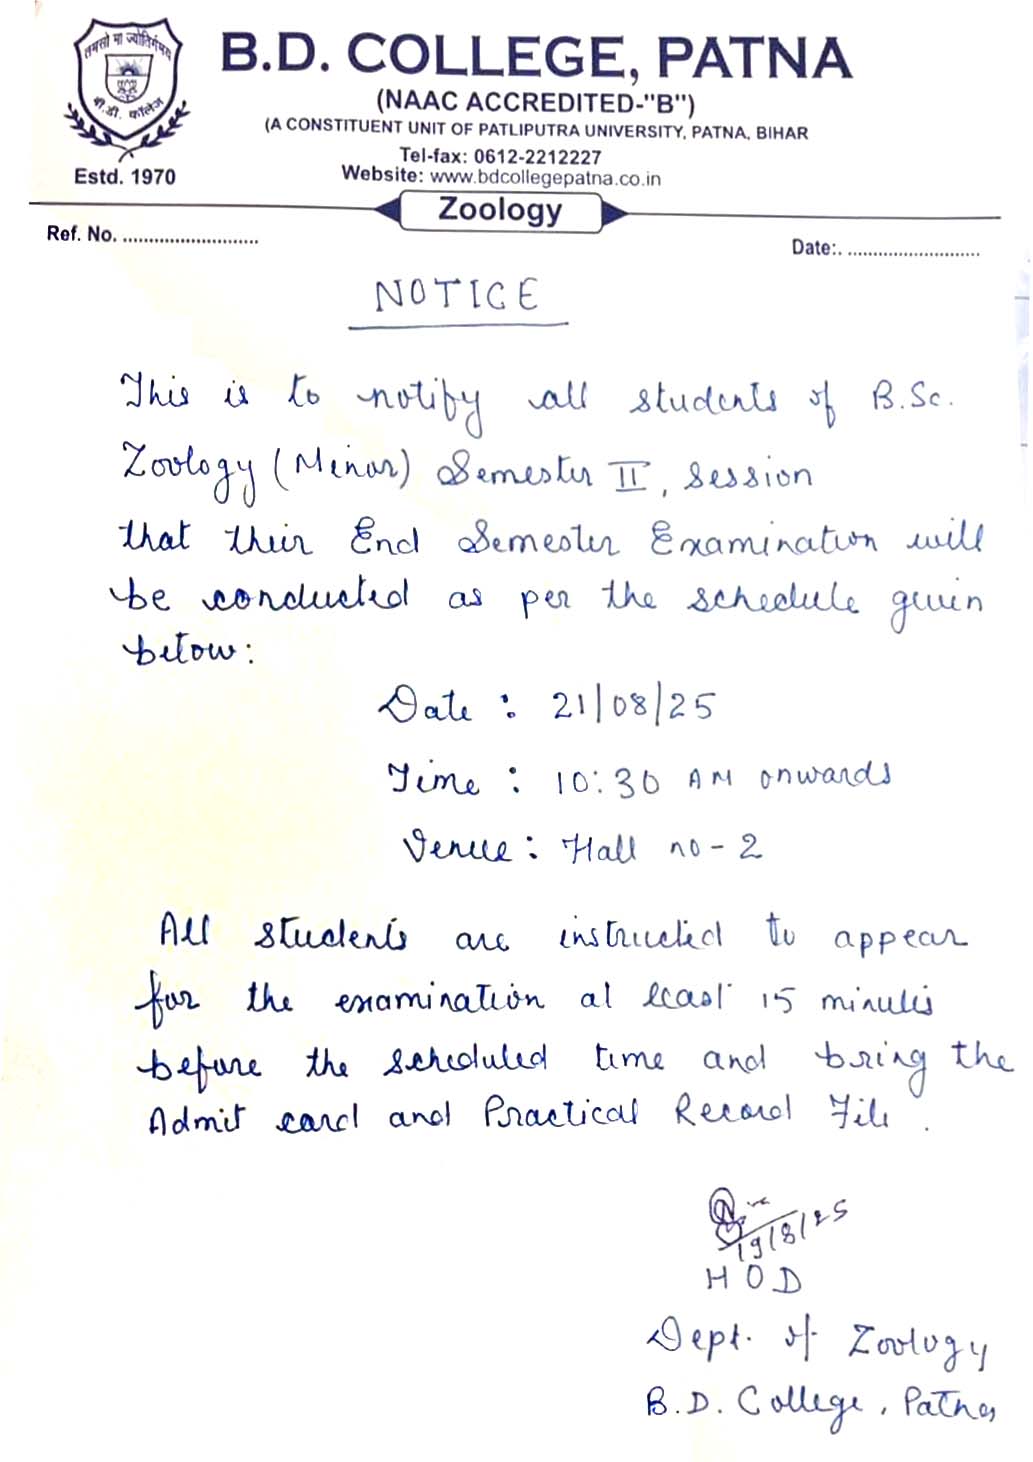 तमसो मा ज्योतिर्गमय
बी.डी. कॉलेज
Estd. 1970
B.D. COLLEGE, PATNA
(NAAC ACCREDITED-"B")
(A CONSTITUENT UNIT OF PATLIPUTRA UNIVERSITY, PATNA, BIHAR
Tel-fax: 0612-2212227
Website: www.bdcollegepatna.co.in
Zoology
Ref. No. ..........................
Date:. ..........................
NOTICE
This is to notify all students of B.Sc.
Zoology (Minor) Semester II, session
that their End Semester Examination will
be conducted as per the schedule given
below:
Date : 21/08/25
Time : 10:30 AM onwards
Venue : Hall no - 2
All students are instructed to appear
for the examination at least 15 minutes
before the scheduled time and bring the
Admit card and Practical Record File.
19/8/25
HOD
Dept. of Zoology
B.D. College, Patna